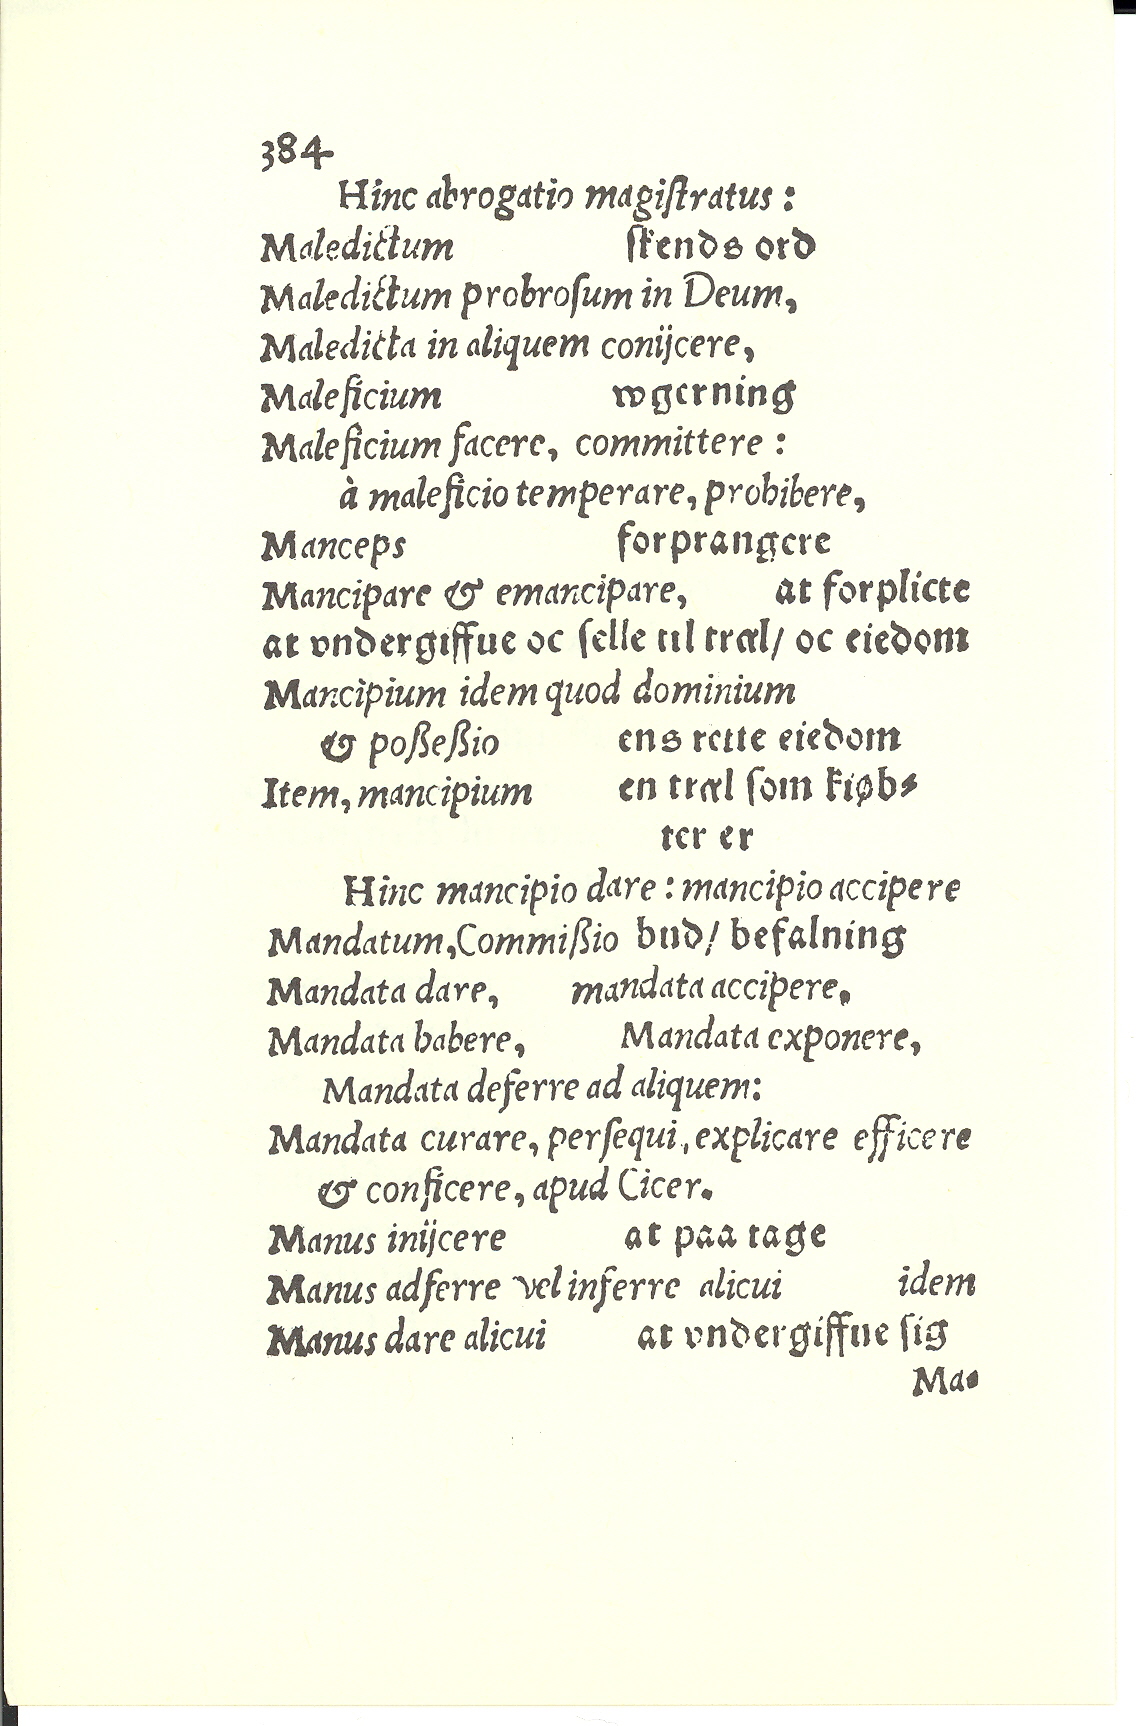 384
Hinc abrogatio magiſtratus :
Maledictum ſkends ord
Maledictum probroſum in Deum,
Maledicta in aliquem conijcere,
Maleficium wgerning
Maleficium facere, committere :
à maleficio temperare, prohibere,
Manceps forprangere
Mancipare & emancipare, at forplicte
at vndergiffue oc ſelle til træl/ oc eiedom
Mancipium idem quod dominium
& poßeßio ens rette eiedom
Item, mancipium en træl ſom kiøb⸗
ter er
Hinc mancipio dare : mancipio accipere
Mandatum, Commißio bud/ befalning
Mandata dare, mandata accipere.
Mandata habere, Mandata exponere,
Mandata deferre ad aliquem:
Mandata curare, perſequi, explicare efficere
& conficere, apud Cicer.
Manus inijcere at paa tage
Manus adferre vel inferre alicui idem
Manus dare alicui at vndergiffue ſig
Ma⸗